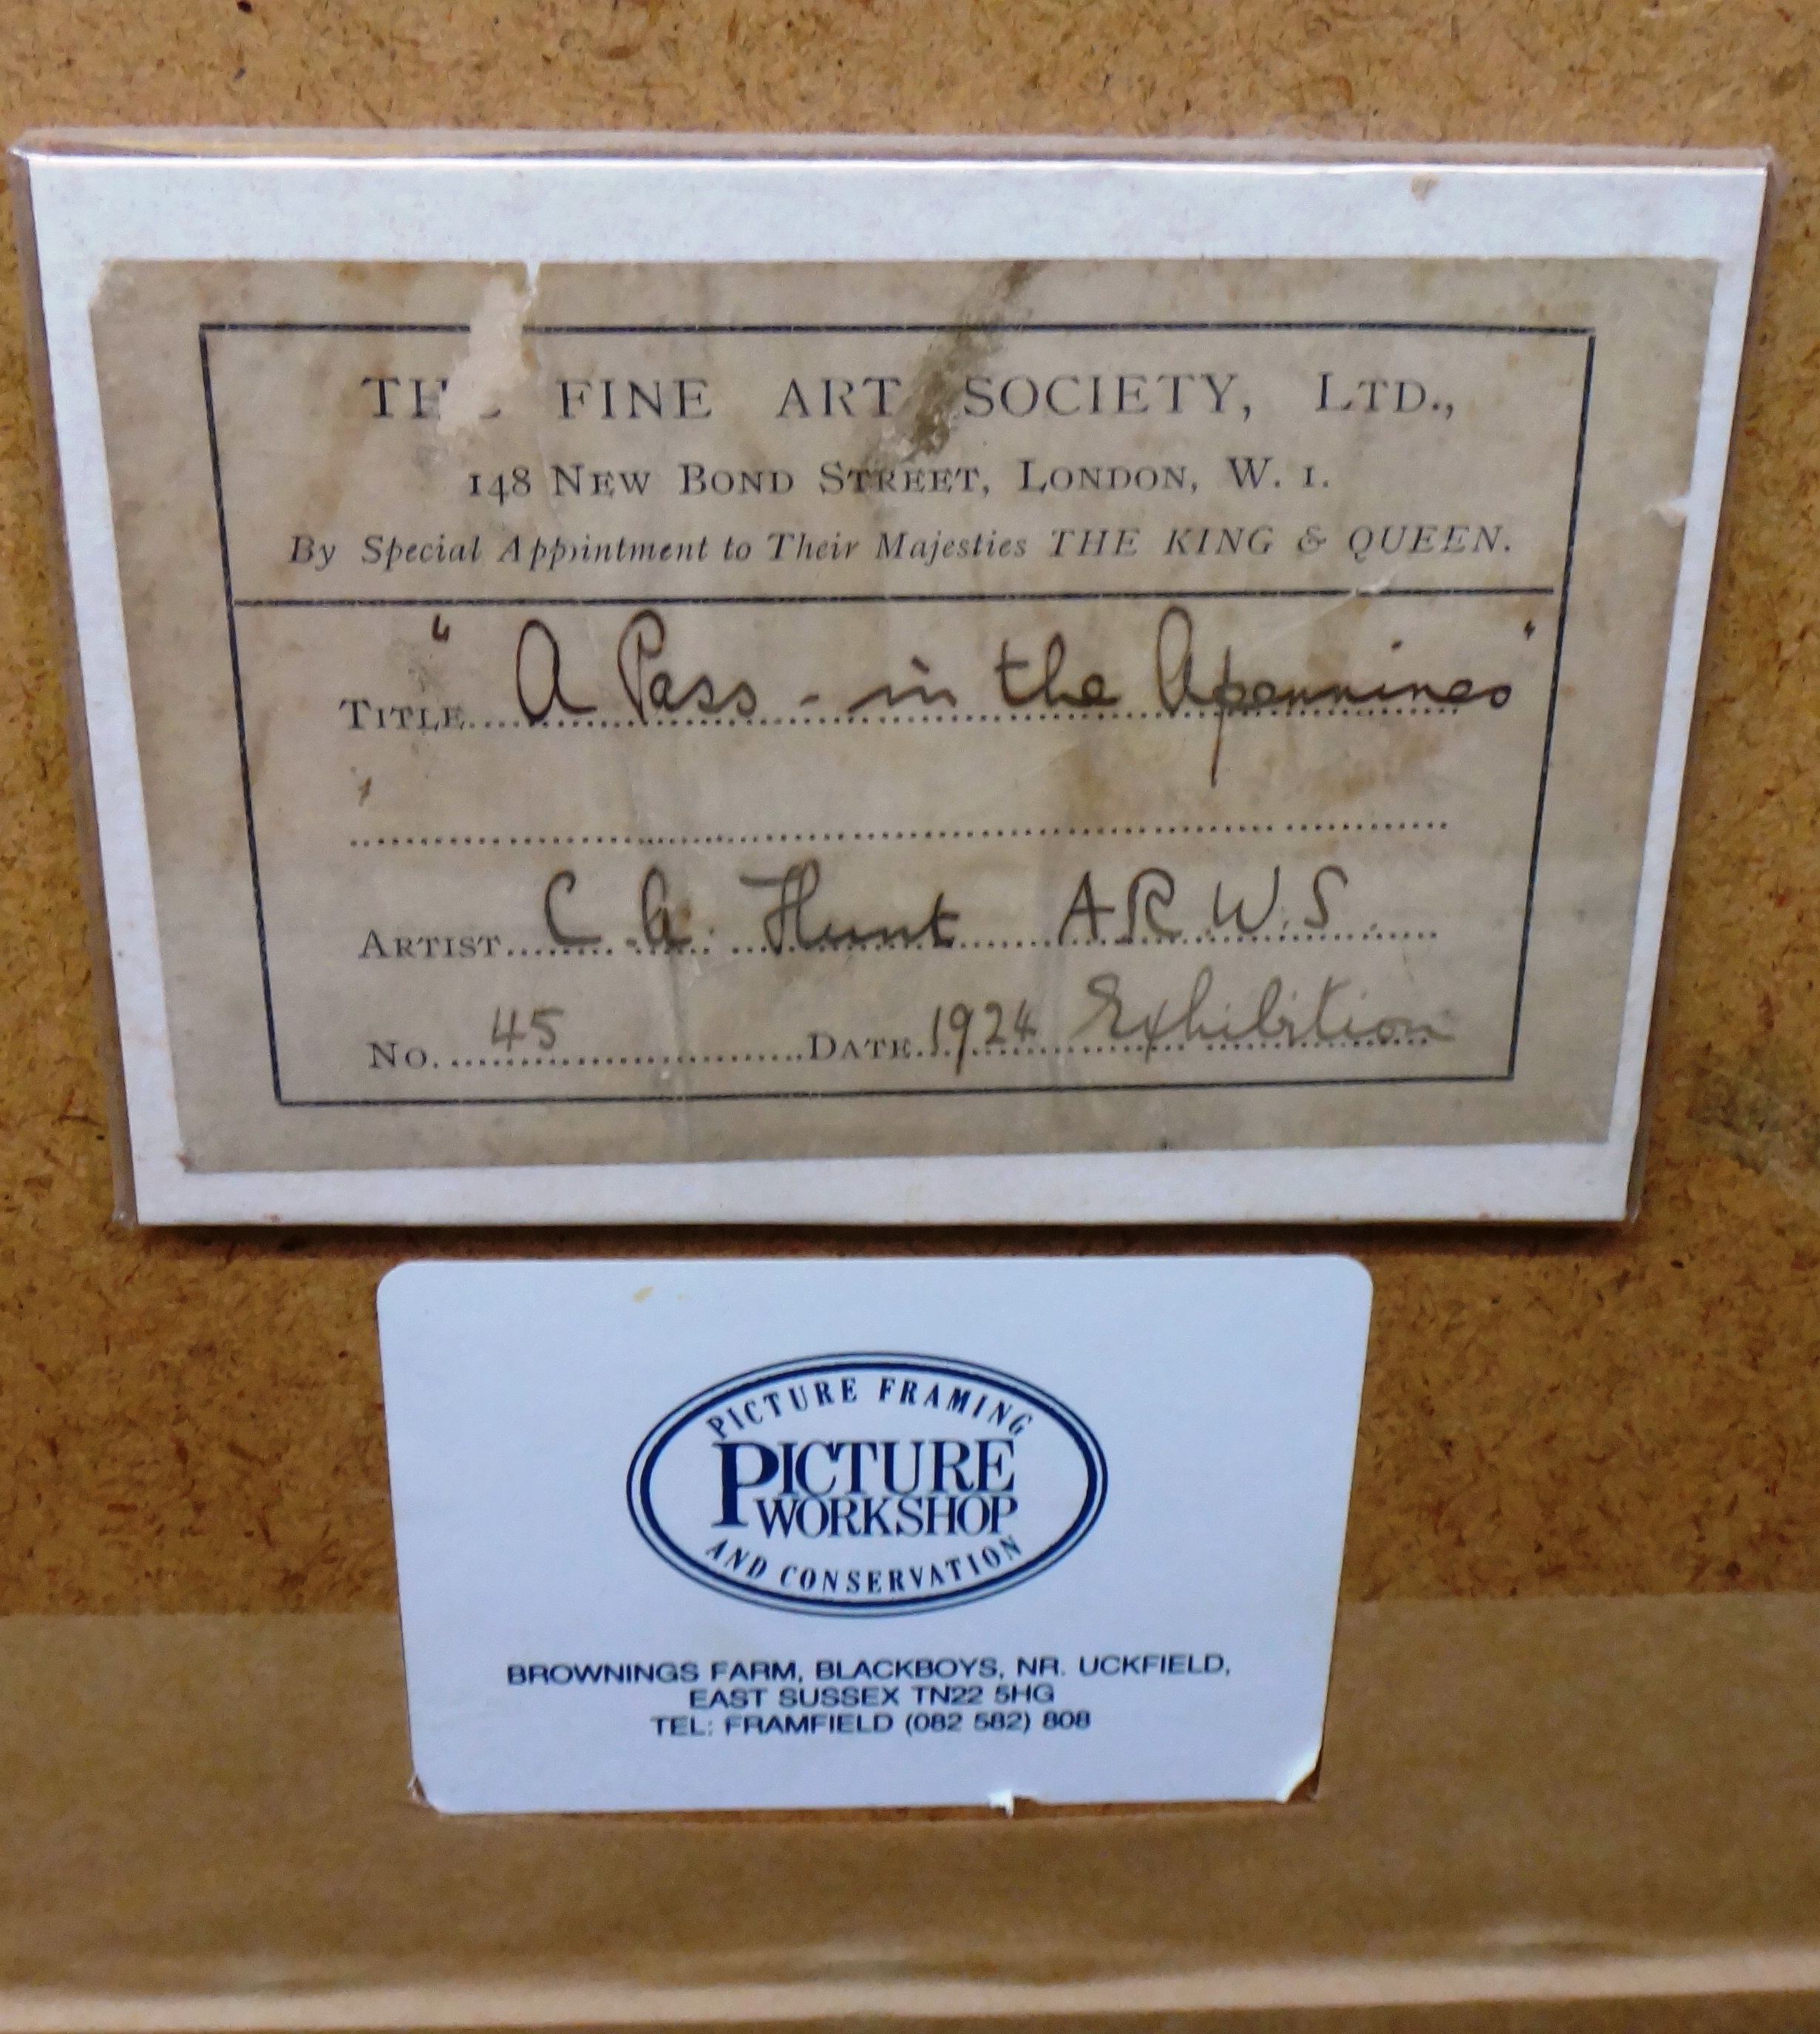 THE FINE ART SOCIETY, LTD.,
148 NEW BOND STREET, LONDON, W. 1.
By Special Appointment to Their Majesties THE KING & QUEEN.
TITLE "A Pass - in the Apennines"
ARTIST C. A. Hunt A.R.W.S.
No. 45 DATE 1924 Exhibition
PICTURE FRAMING
PICTURE
WORKSHOP
AND CONSERVATION
BROWNINGS FARM, BLACKBOYS, NR. UCKFIELD,
EAST SUSSEX TN22 5HG
TEL: FRAMFIELD (082 582) 808